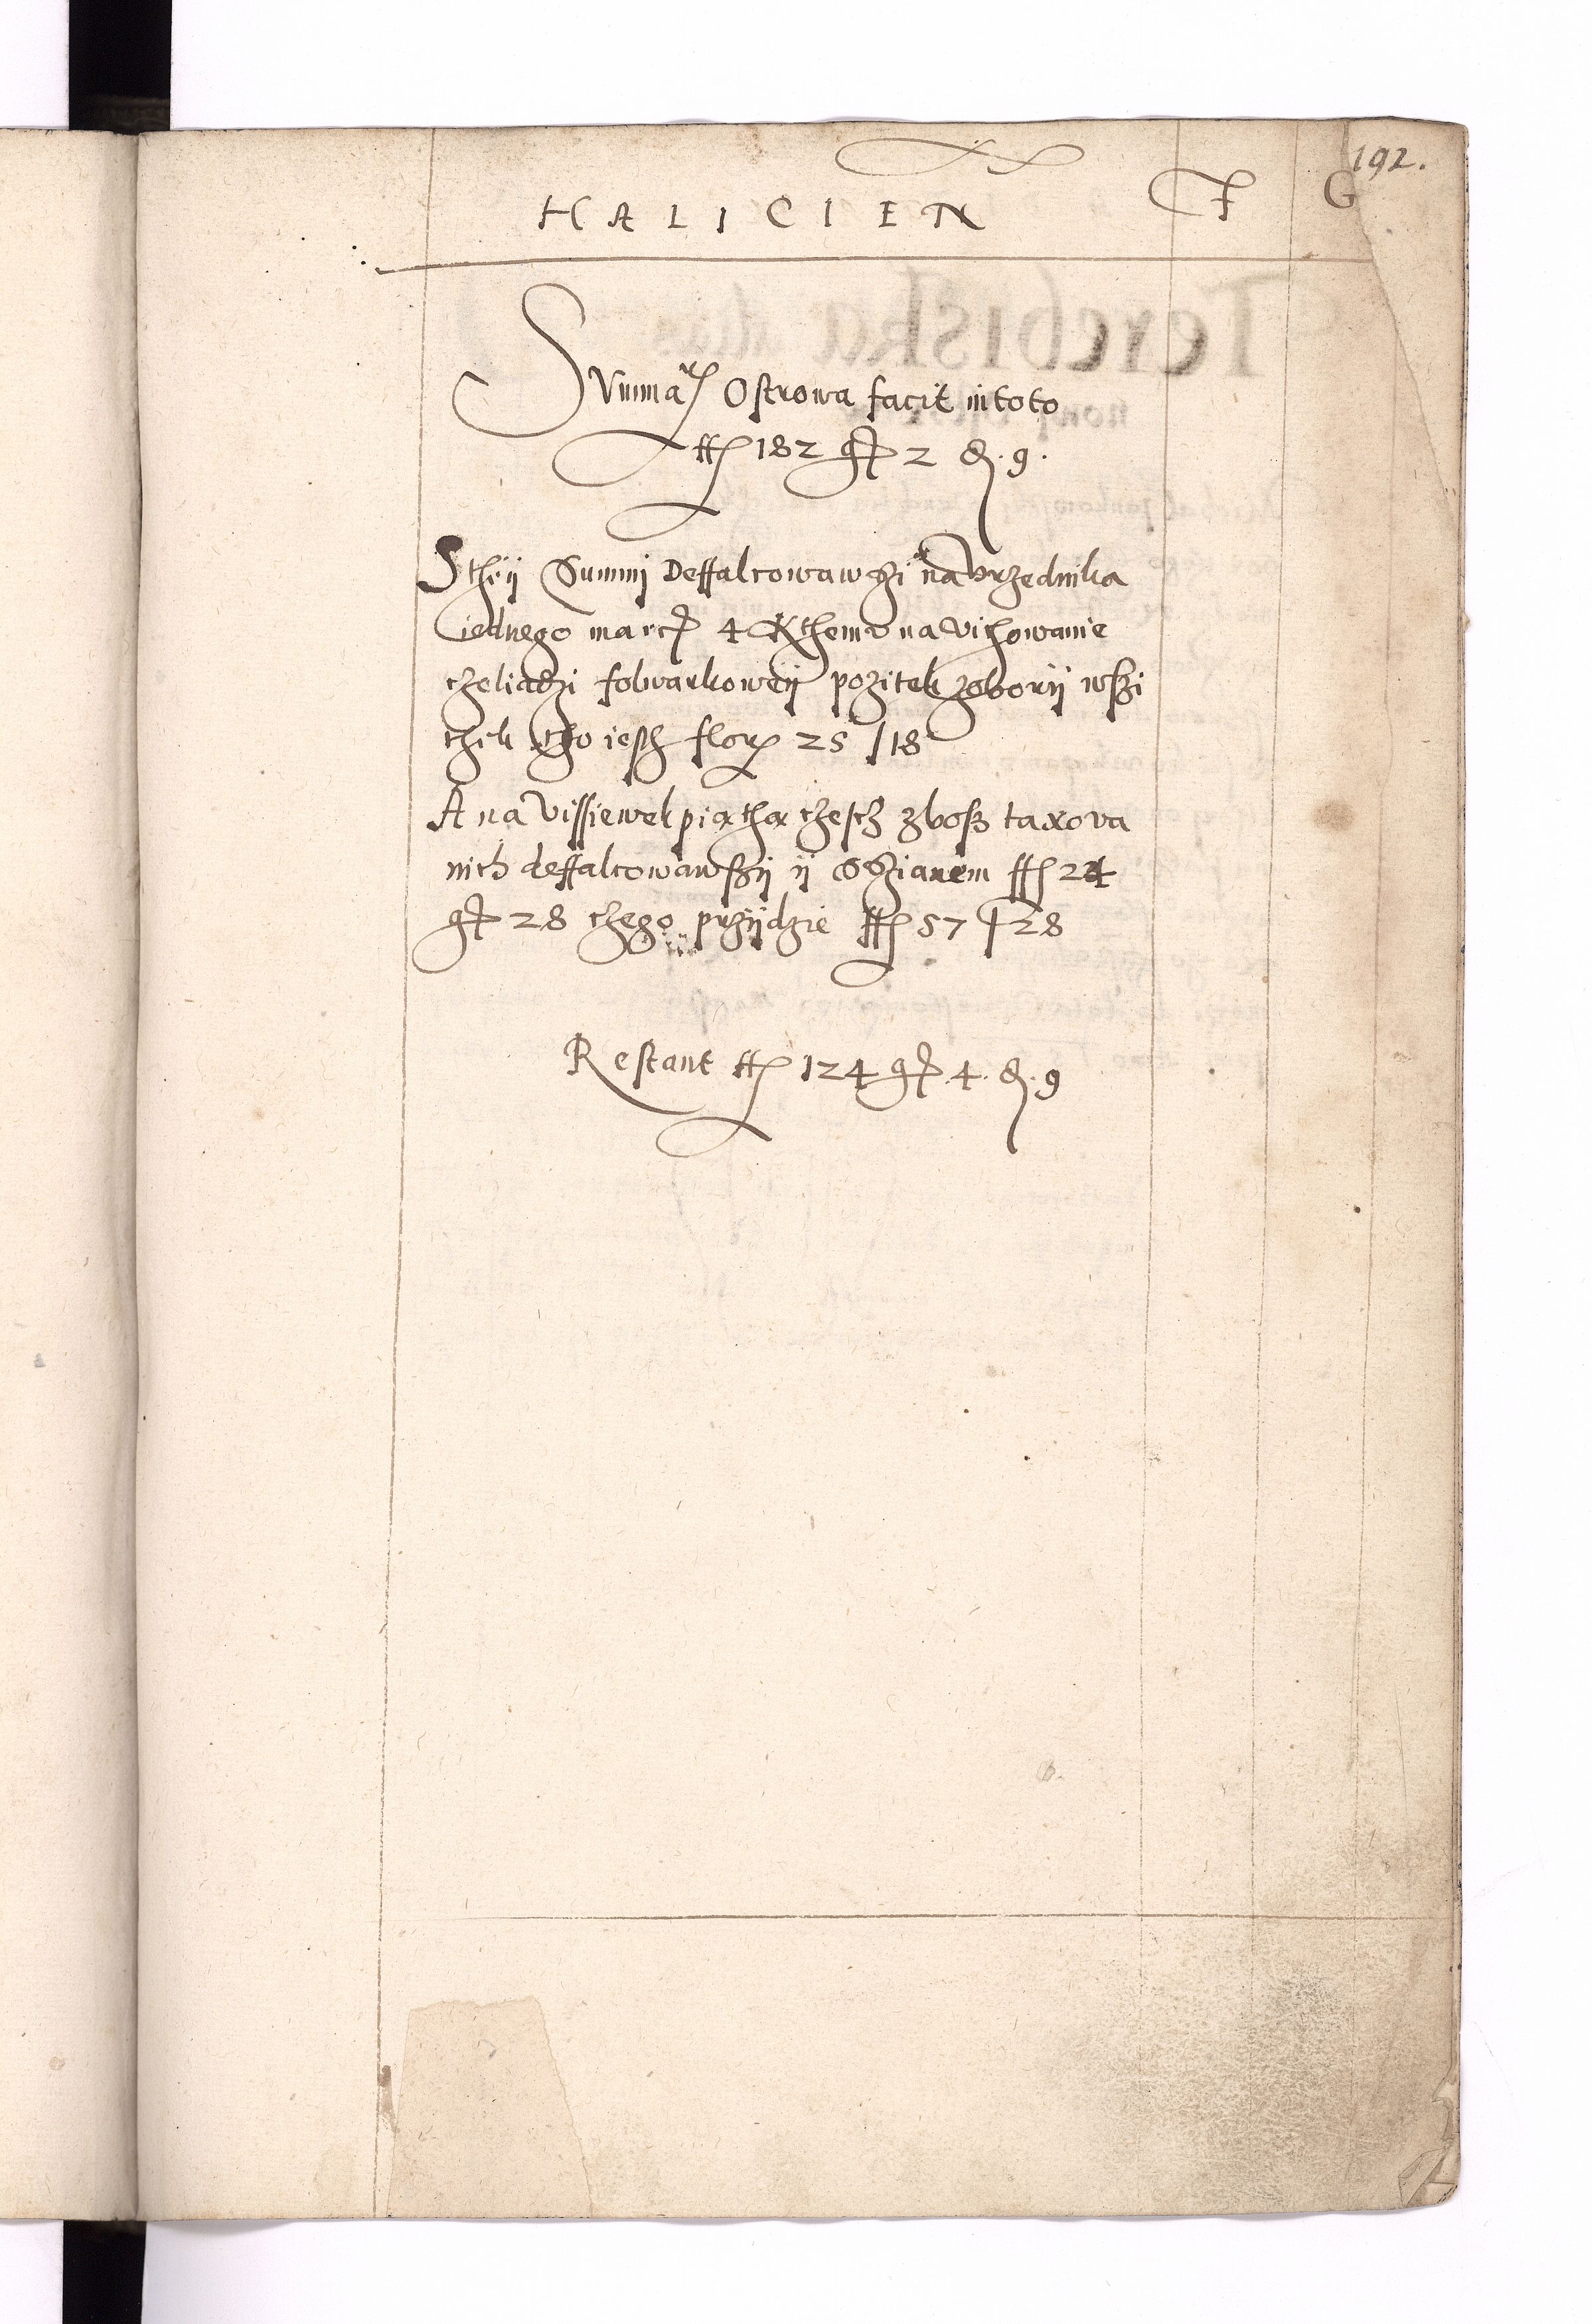 192.
HALICIEN F G
Summa Ostrowa facit in toto
ff 182 gr 2 d. 9.
S theij Summij Deffalcowawszi na Vrzednika
iednego marc 4 K themv na vichowanie
czeliadzi folwarkoweij pozitek zoborij wszi
thek tho iesth flor 25 / 18
A na vissiewek piatha czescz zbosz taxova
nich deffalcowawszij ij Sszianem ff 24
gr 28 czego przijdzie ff 57 / 28
Restant ff 124 gr 4. d. 9